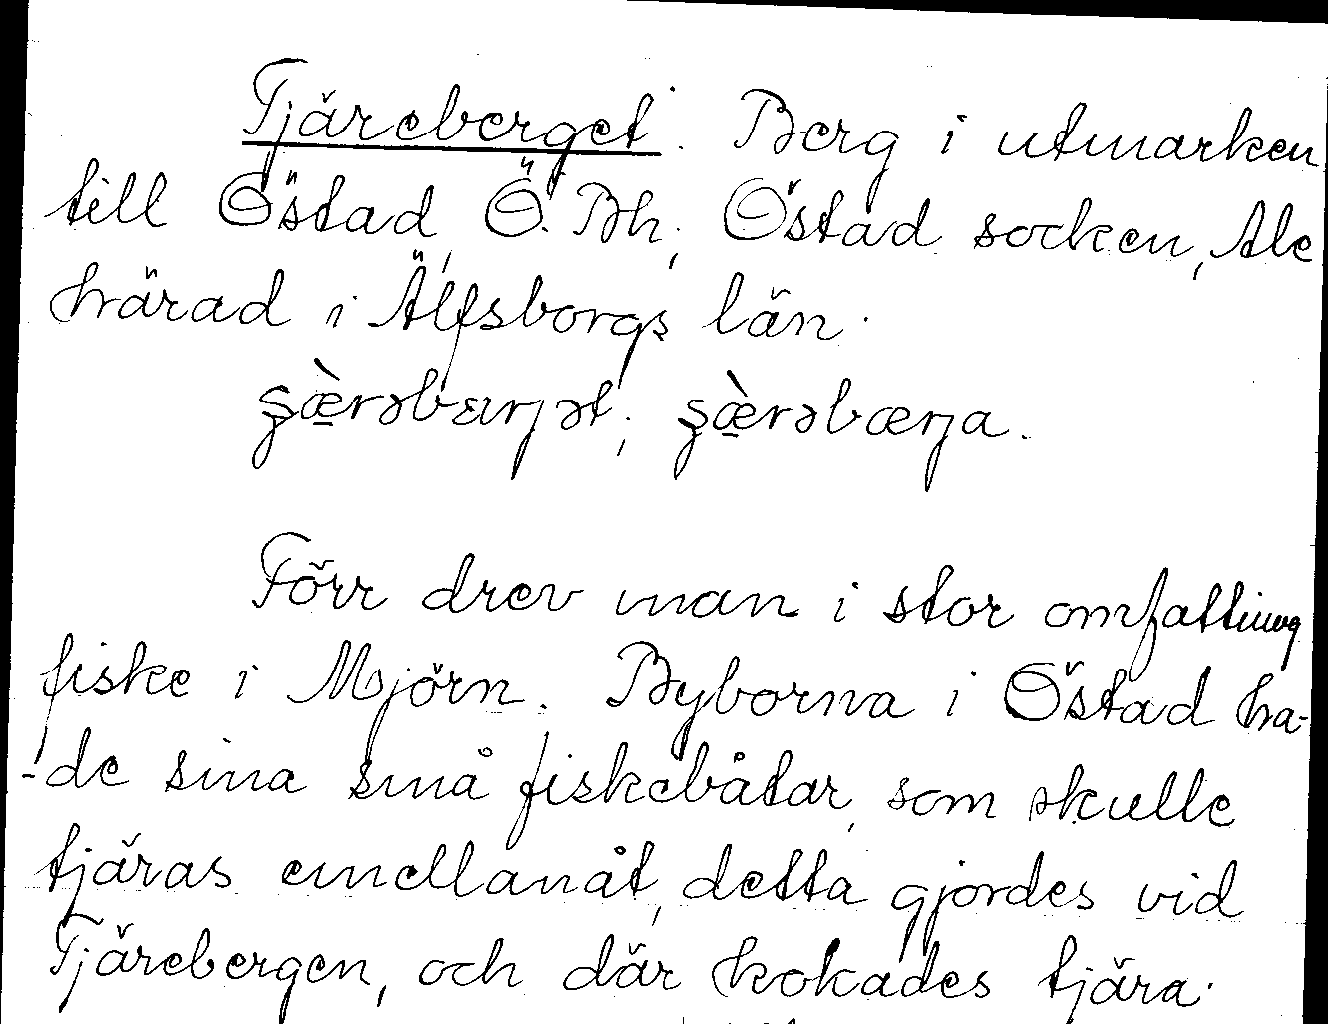 Tjäreberget. Berg i utmarken
till Östad, Ö. Bh; Östad socken, Ale
härad i Älfsborgs län.
ʂæ̀rəbærjət; ʂæ̀rəbærja.
Förr drev man i stor omfattning
fiske i Mjörn. Byborna i Östad ha-
-de sina små fiskebåtar, som skulle
tjäras emellanåt, detta gjordes vid
Tjärebergen, och där kokades tjära.